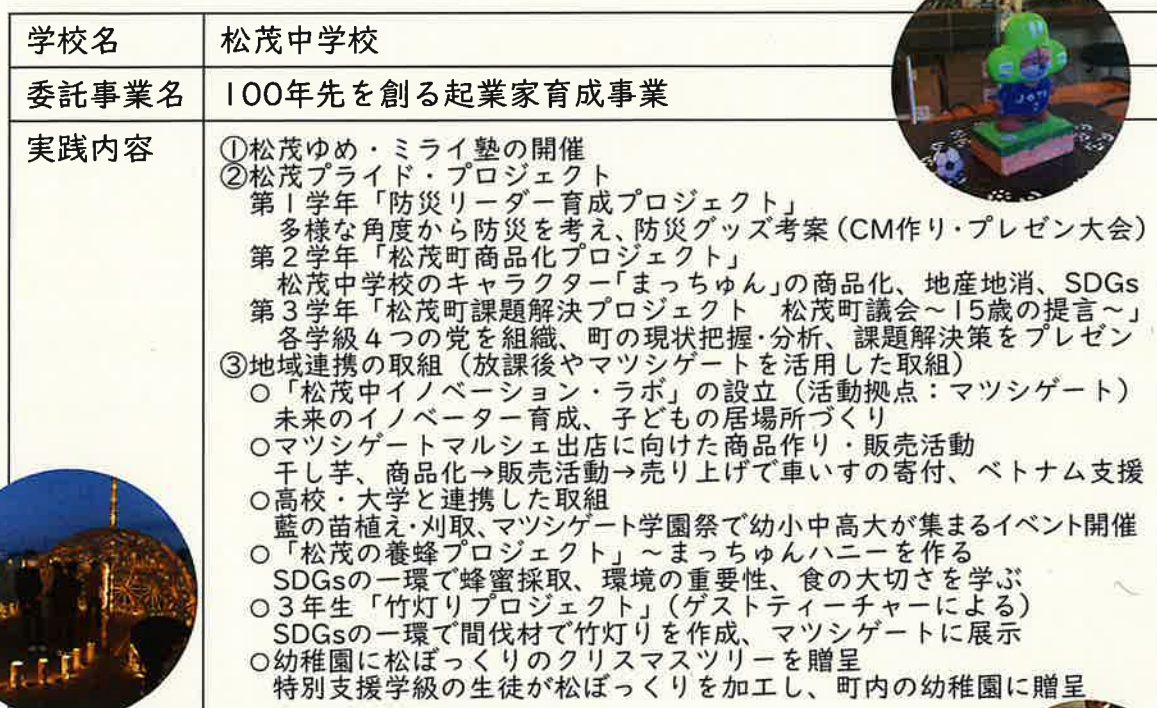 学校名 松茂中学校
委託事業名 100年先を創る起業家育成事業
実践内容 ①松茂ゆめ・ミライ塾の開催
②松茂プライド・プロジェクト
第1学年「防災リーダー育成プロジェクト」
多様な角度から防災を考え、防災グッズ考案(CM作り・プレゼン大会)
第2学年「松茂町商品化プロジェクト」
松茂中学校のキャラクター「まっちゅん」の商品化、地産地消、SDGs
第3学年「松茂町課題解決プロジェクト 松茂町議会~15歳の提言~」
各学級4つの党を組織、町の現状把握・分析、課題解決策をプレゼン
③地域連携の取組(放課後やマツシゲートを活用した取組)
○「松茂中イノベーション・ラボ」の設立(活動拠点:マツシゲート)
未来のイノベーター育成、子どもの居場所づくり
○マツシゲートマルシェ出店に向けた商品作り・販売活動
干し芋、商品化→販売活動→売り上げで車いすの寄付、ベトナム支援
○高校・大学と連携した取組
藍の苗植え・刈取、マツシゲート学園祭で幼小中高大が集まるイベント開催
○「松茂の養蜂プロジェクト」~まっちゅんハニーを作る
SDGsの一環で蜂蜜採取、環境の重要性、食の大切さを学ぶ
○3年生「竹灯りプロジェクト」(ゲストティーチャーによる)
SDGsの一環で間伐材で竹灯りを作成、マツシゲートに展示
○幼稚園に松ぼっくりのクリスマスツリーを贈呈
特別支援学級の生徒が松ぼっくりを加工し、町内の幼稚園に贈呈